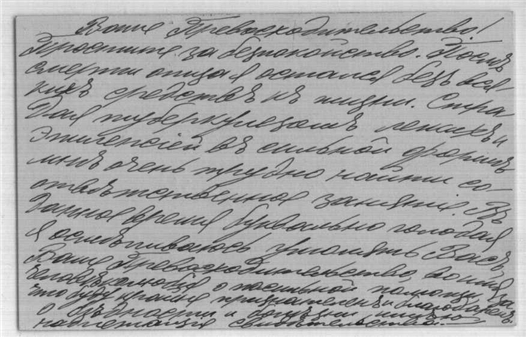 Ваше Превосходительство!
Простите за безпокойство. Послѣ
смерти отца я остался безъ вся
кихъ средствъ къ жизни. Стра
дая туберкулезомъ легкихъ и
эпилепсіей въ сильной формѣ
мнѣ очень трудно найти со-
отвѣтственное занятіе. Въ
данное время буквально голодая
я осмѣливаюсь умолять Васъ,
Ваше Превосходительство
о посильной помощи за
что буду крайне признателенъ и благодаренъ
О бѣдности и болѣзни
свидѣтельства.